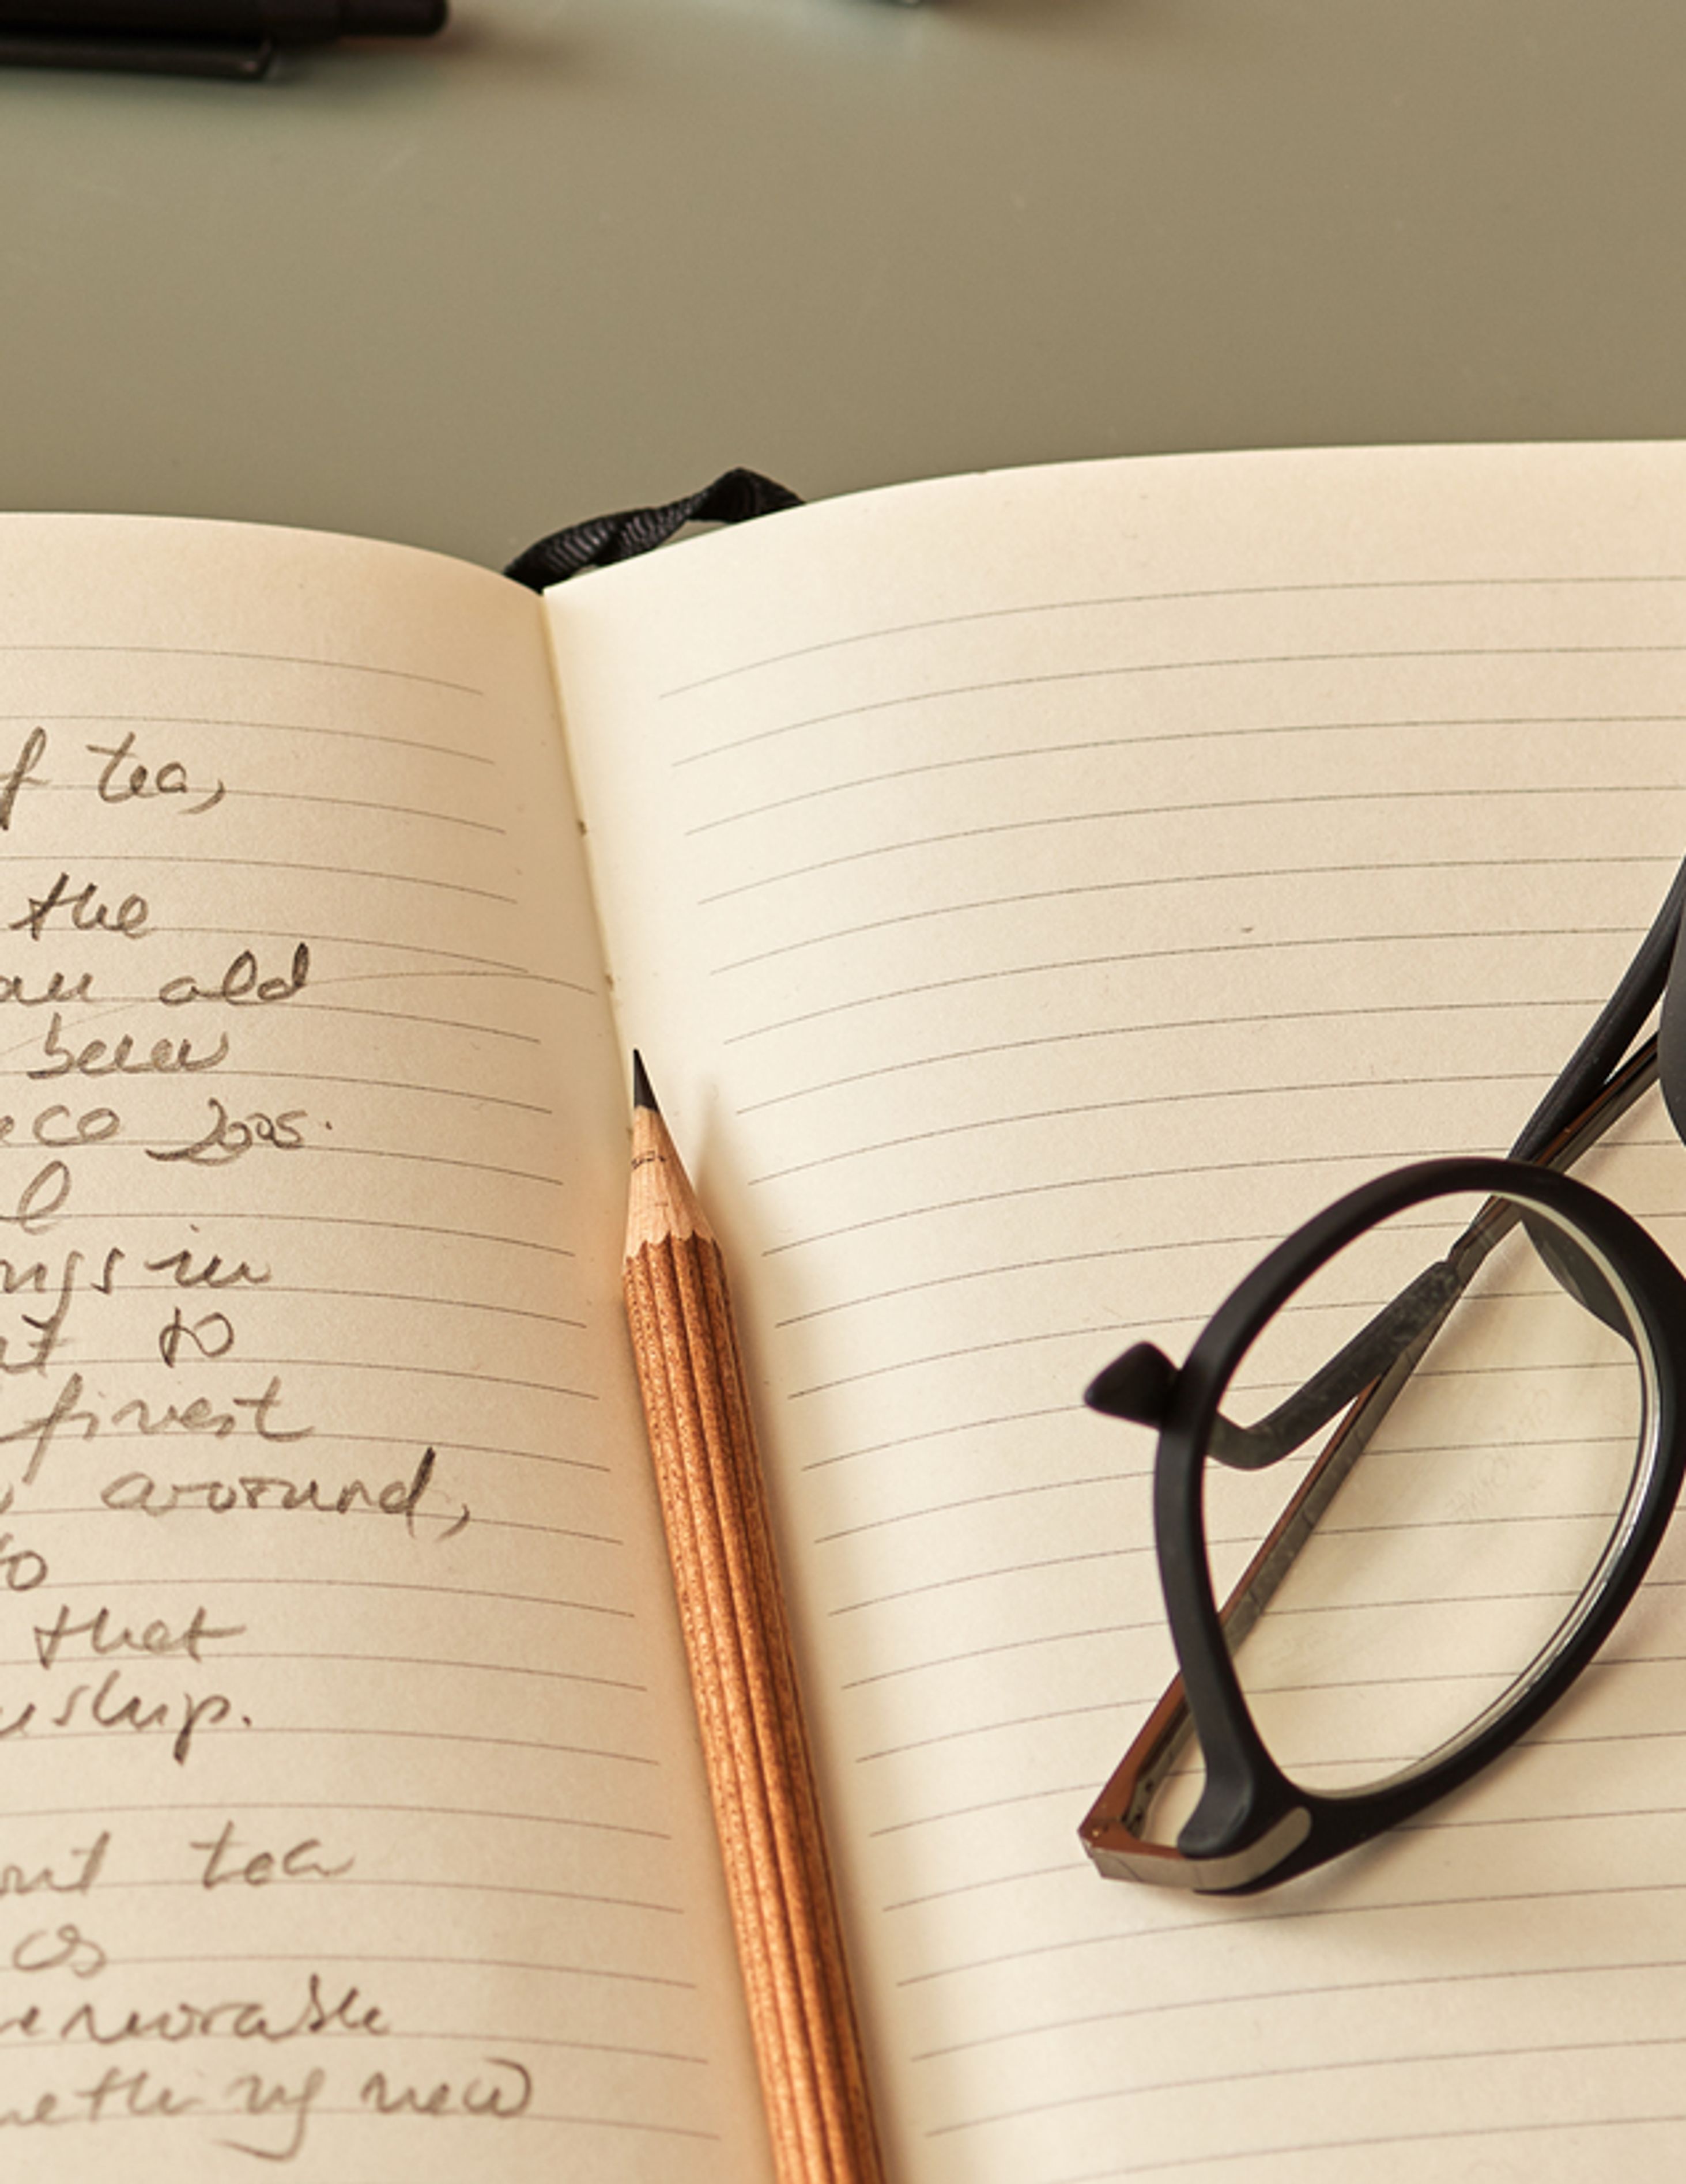 f tea,
the
an old
been
eco 2005.
l
ngs in
at to
finest
around,
to
that
nship.
out tea
as
memorable
mething new